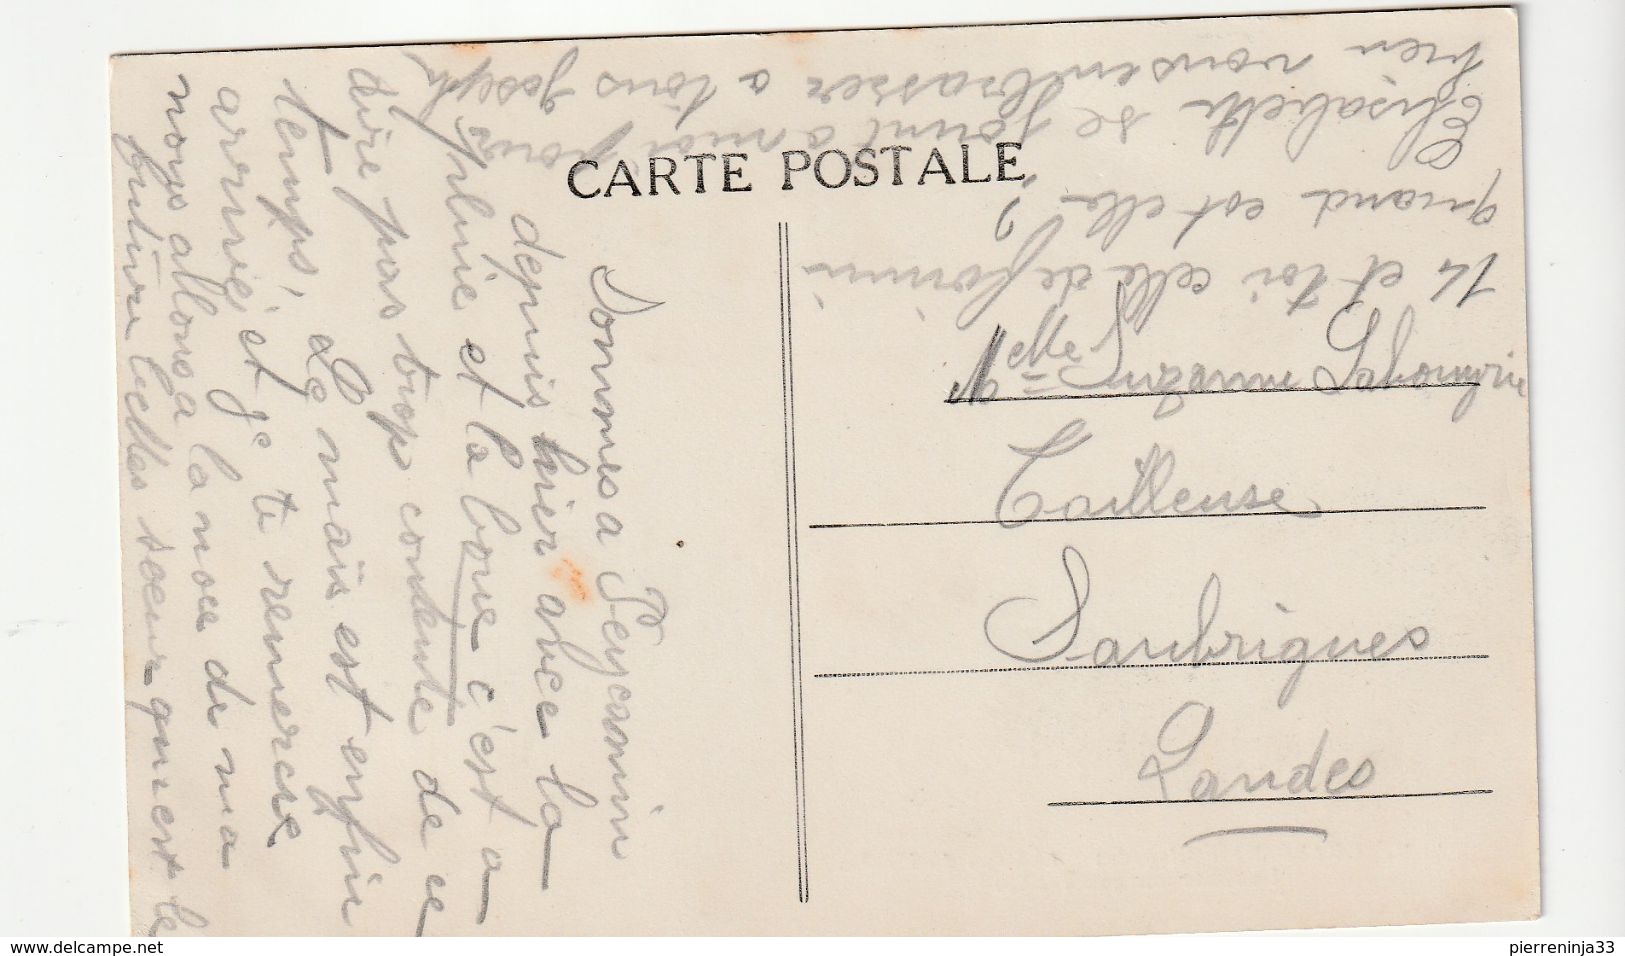 CARTE POSTALE
Sommes a Peyconnin
depuis hier avec la
pluie et la boue c'est a
dire pas trop contente de ce
temps, Le maïs est enfin
arrivé et je te remercie
nous allons a la noce de ma
future belles soeur qui est le
14 et toi celle de fornin
quand est elle ?
Elisabeth se joint a moi pour
bien vous embrasser a tous Joseph
Melle Suzanne Labourie
Tailleuse
Saubrigues
Landes
www.delcampe.net
pierreninja33